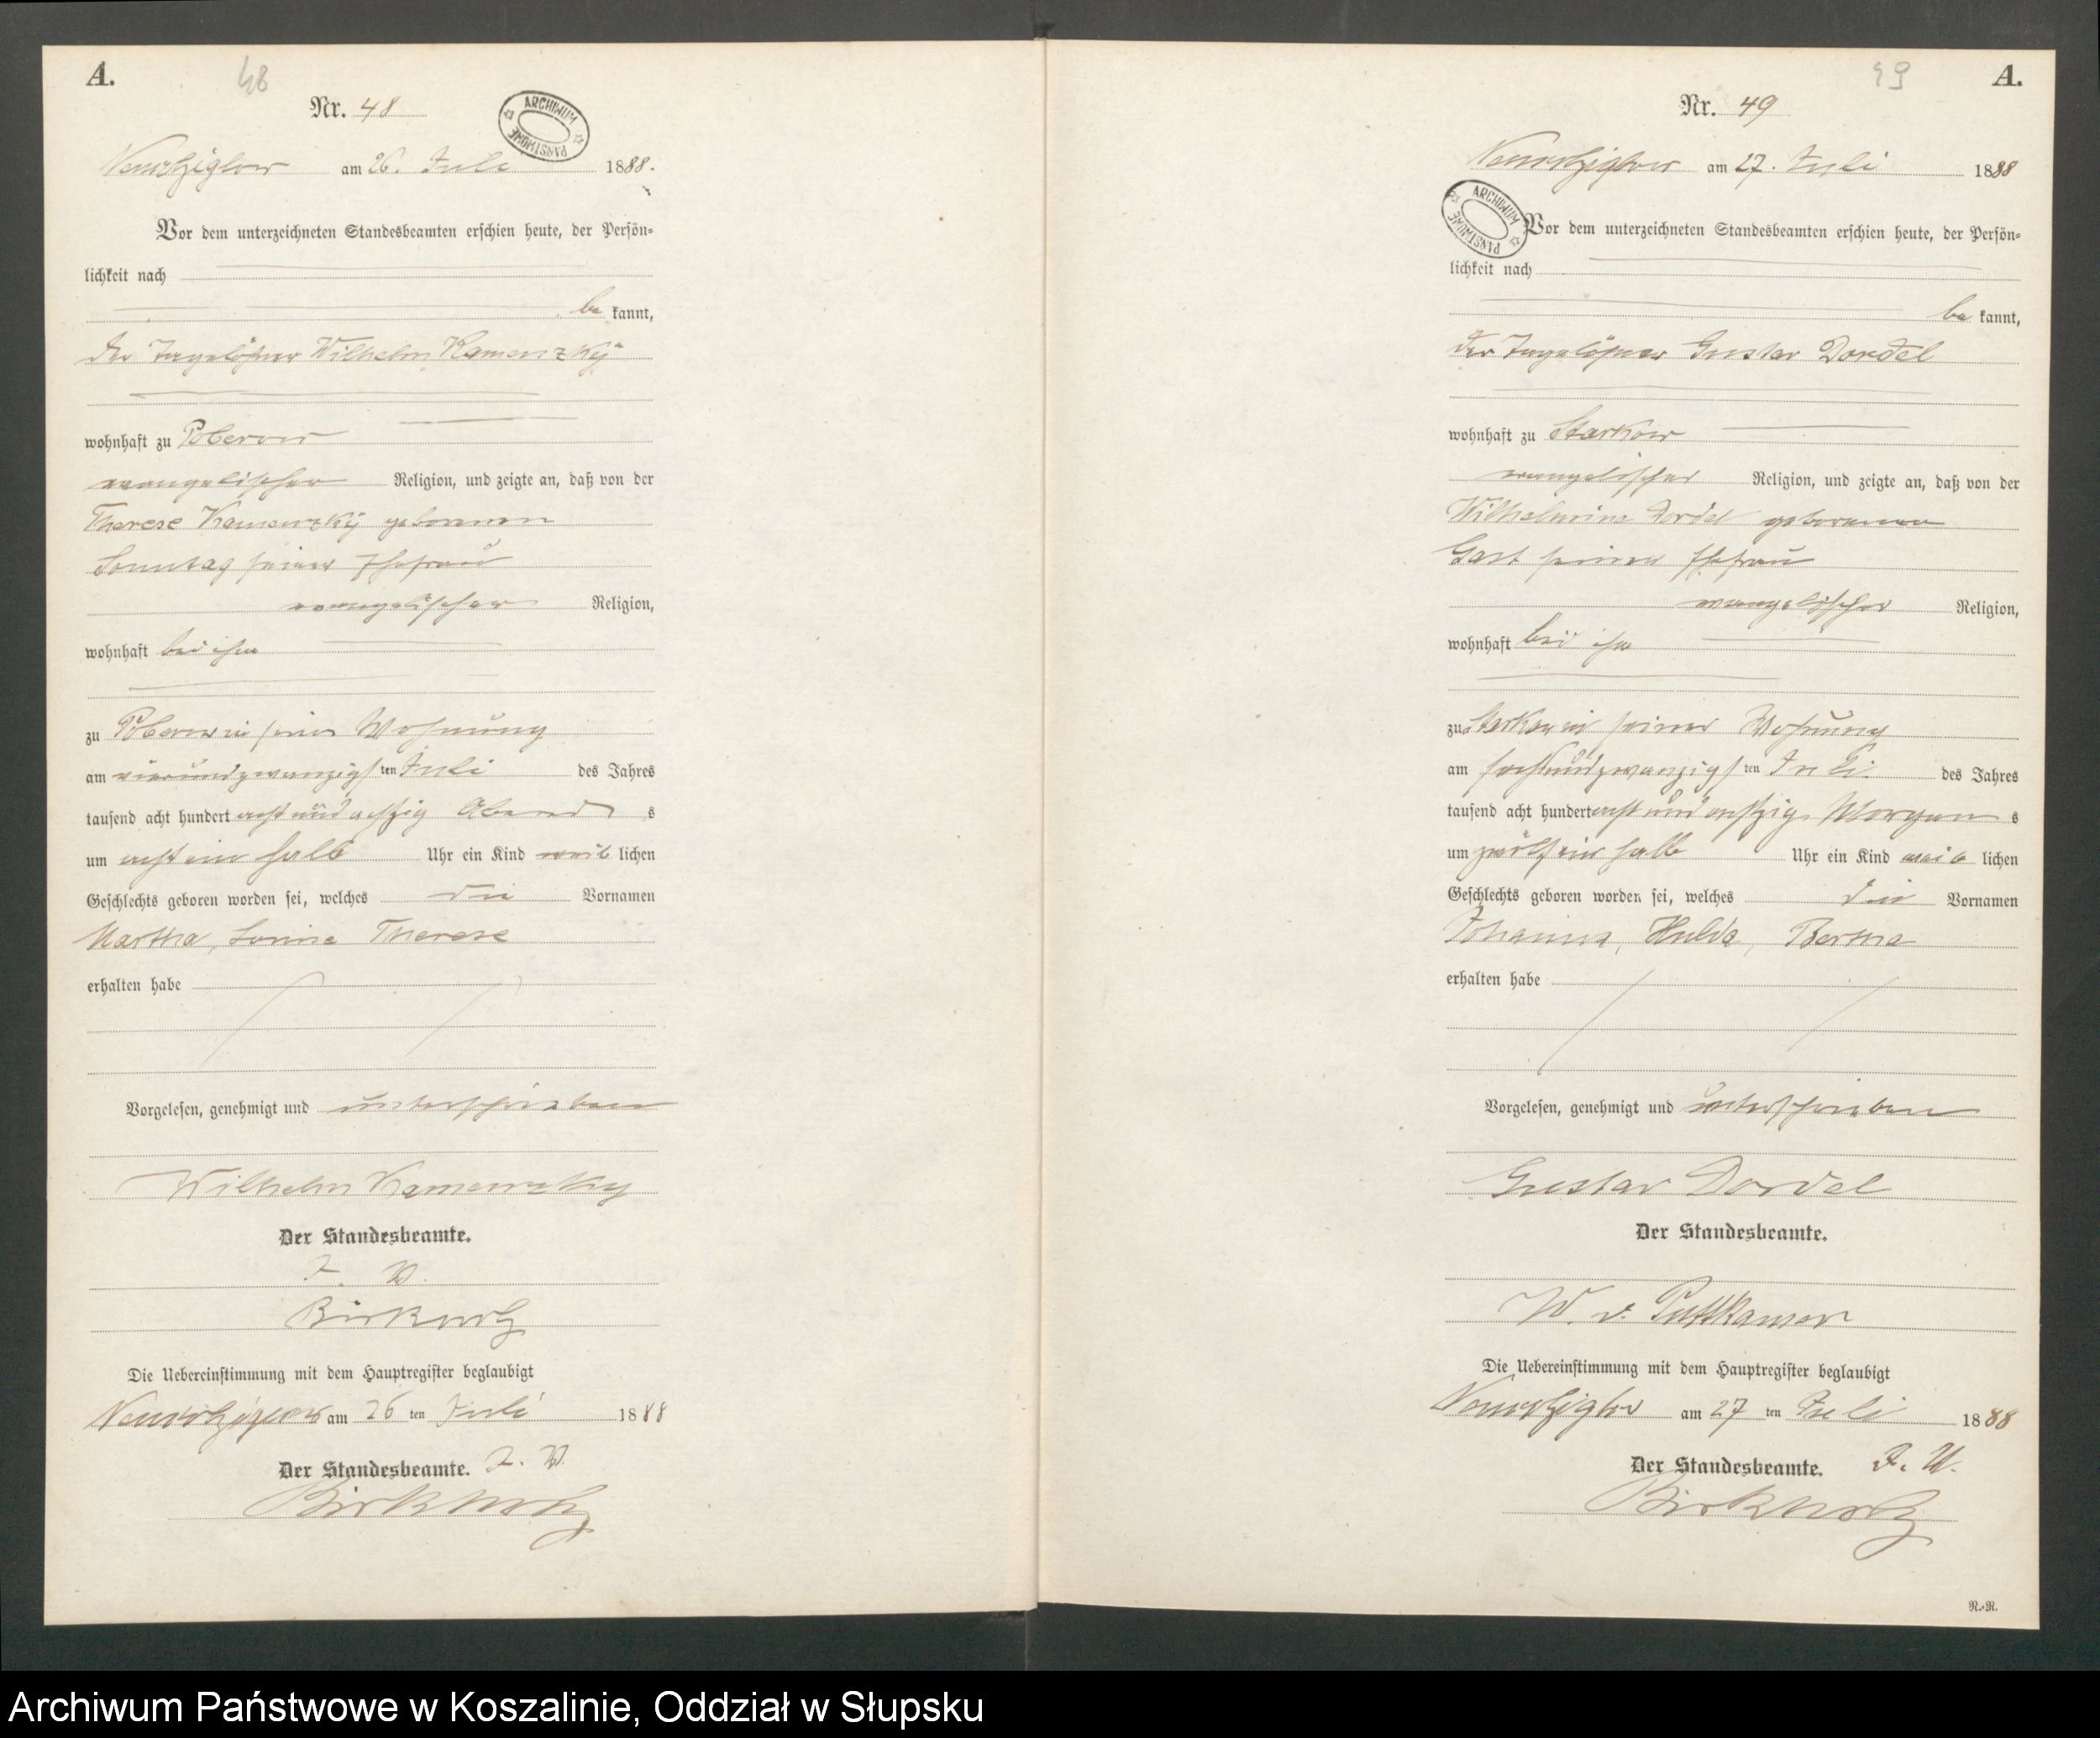 A.
48
Nr. 48
ARCHIWUM PAŃSTWOWE
am 26. Juli 1888.
Vor dem unterzeichneten Standesbeamten erschien heute, der Persön=
lichkeit nach
be kannt,
der Tagelöhner Wilhelm Kamenzky
wohnhaft zu Poberow
evangelischer Religion, und zeigte an, daß von der
Therese Kamenzky geborenen
Sonntag seiner Ehefrau
evangelischer Religion,
wohnhaft bei ihm
zu Poberow in seiner Wohnung
am vierundzwanzigsten Juli des Jahres
tausend acht hundert acht und achtzig Abends
um acht ein halb Uhr ein Kind weiblichen
Geschlechts geboren worden sei, welches die Vornamen
Martha, Therese
erhalten habe
Vorgelesen, genehmigt und unterschrieben
Wilhelm Kamenzky
Der Standesbeamte.
J. V.
Birkholz
Die Uebereinstimmung mit dem Hauptregister beglaubigt
am 26 ten Juli 1888
Der Standesbeamte. J. V.
Birkholz
49
A.
Nr. 49
am 27. Juli 1888
ARCHIWUM PAŃSTWOWE
Vor dem unterzeichneten Standesbeamten erschien heute, der Persön=
lichkeit nach
be kannt,
der Tagelöhner Gustav Dordel
wohnhaft zu Starkow
evangelischer Religion, und zeigte an, daß von der
Wilhelmine Dordel geborenen
Gast seiner Ehefrau
evangelischer Religion,
wohnhaft bei ihm
zu Starkow in seiner Wohnung
am sechsundzwanzigsten Juli des Jahres
tausend acht hundert acht und achtzig Morgens
um zwölf ein halb Uhr ein Kind weiblichen
Geschlechts geboren worden sei, welches die Vornamen
Johanna, Hulda, Bertha
erhalten habe
Vorgelesen, genehmigt und unterschrieben
Gustav Dordel
Der Standesbeamte.
W. v. Puttkamer
Die Uebereinstimmung mit dem Hauptregister beglaubigt
am 27 ten Juli 1888
Der Standesbeamte. J. V.
Birkholz
R.=R.
Archiwum Państwowe w Koszalinie, Oddział w Słupsku